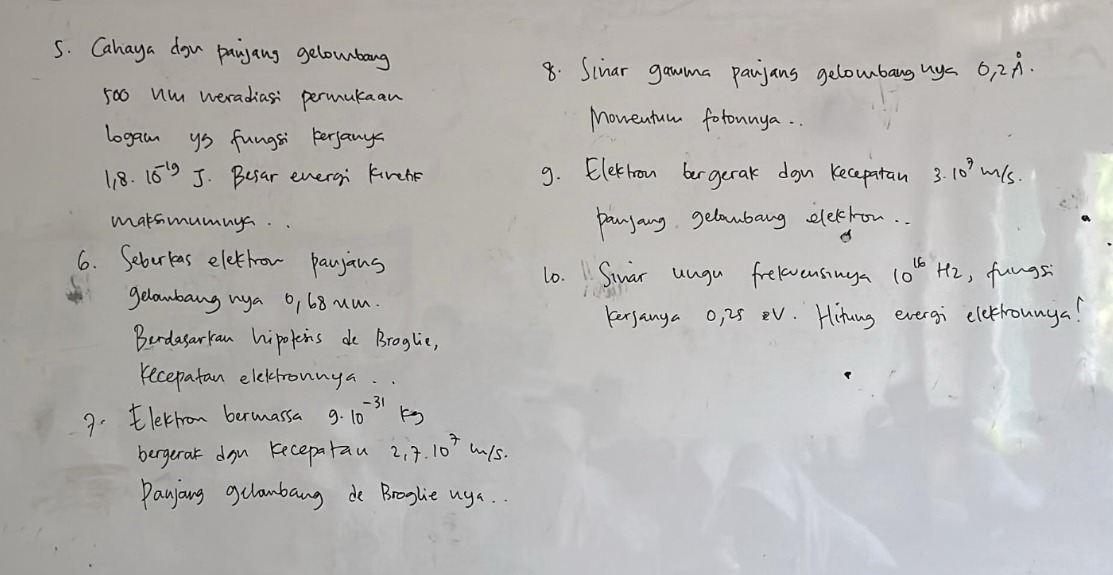 5. Cahaya dgn panjang gelombang
500 nm meradiasi permukaan
logam yg fungsi kerjanya
1,8. 10⁻¹⁹ J. Besar energi kinetik
maksimumnya . .
6. Seberkas elektron panjang
gelombang nya 0,68 nm.
Berdasarkan hipotesis de Broglie,
kecepatan elektronnya . .
7. Elektron bermassa 9.10⁻³¹ kg
bergerak dgn kecepatan 2,7.10⁷ m/s.
Panjang gelombang de Broglie nya . .
8. Sinar gamma panjang gelombang nya 0,2 Å.
Momentum fotonnya . .
9. Elektron bergerak dgn kecepatan 3.10⁷ m/s.
panjang gelombang elektron . .
10. Sinar ungu frekuensinya 10¹⁶ Hz, fungsi
kerjanya 0,25 eV. Hitung energi elektronnya!